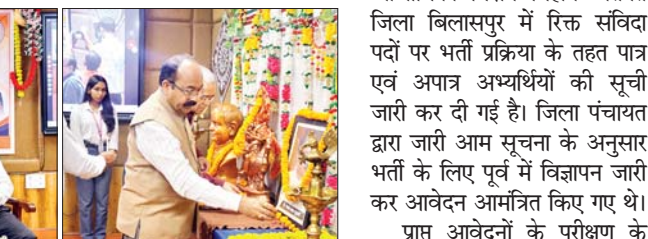 जिला बिलासपुर में रिक्त संविदा
पदों पर भर्ती प्रक्रिया के तहत पात्र
एवं अपात्र अभ्यर्थियों की सूची
जारी कर दी गई है। जिला पंचायत
द्वारा जारी आम सूचना के अनुसार
भर्ती के लिए पूर्व में विज्ञापन जारी
कर आवेदन आमंत्रित किए गए थे।
प्राप्त आवेदनों के परीक्षण के